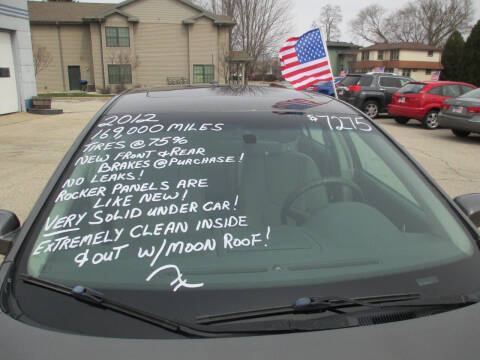 2012
169,000 MILES
TIRES @ 75%
NEW FRONT & REAR
BRAKES @ PURCHASE!
NO LEAKS!
ROCKER PANELS ARE
LIKE NEW!
VERY SOLID UNDER CAR!
EXTREMELY CLEAN INSIDE
& OUT W/ MOON ROOF!
$7275